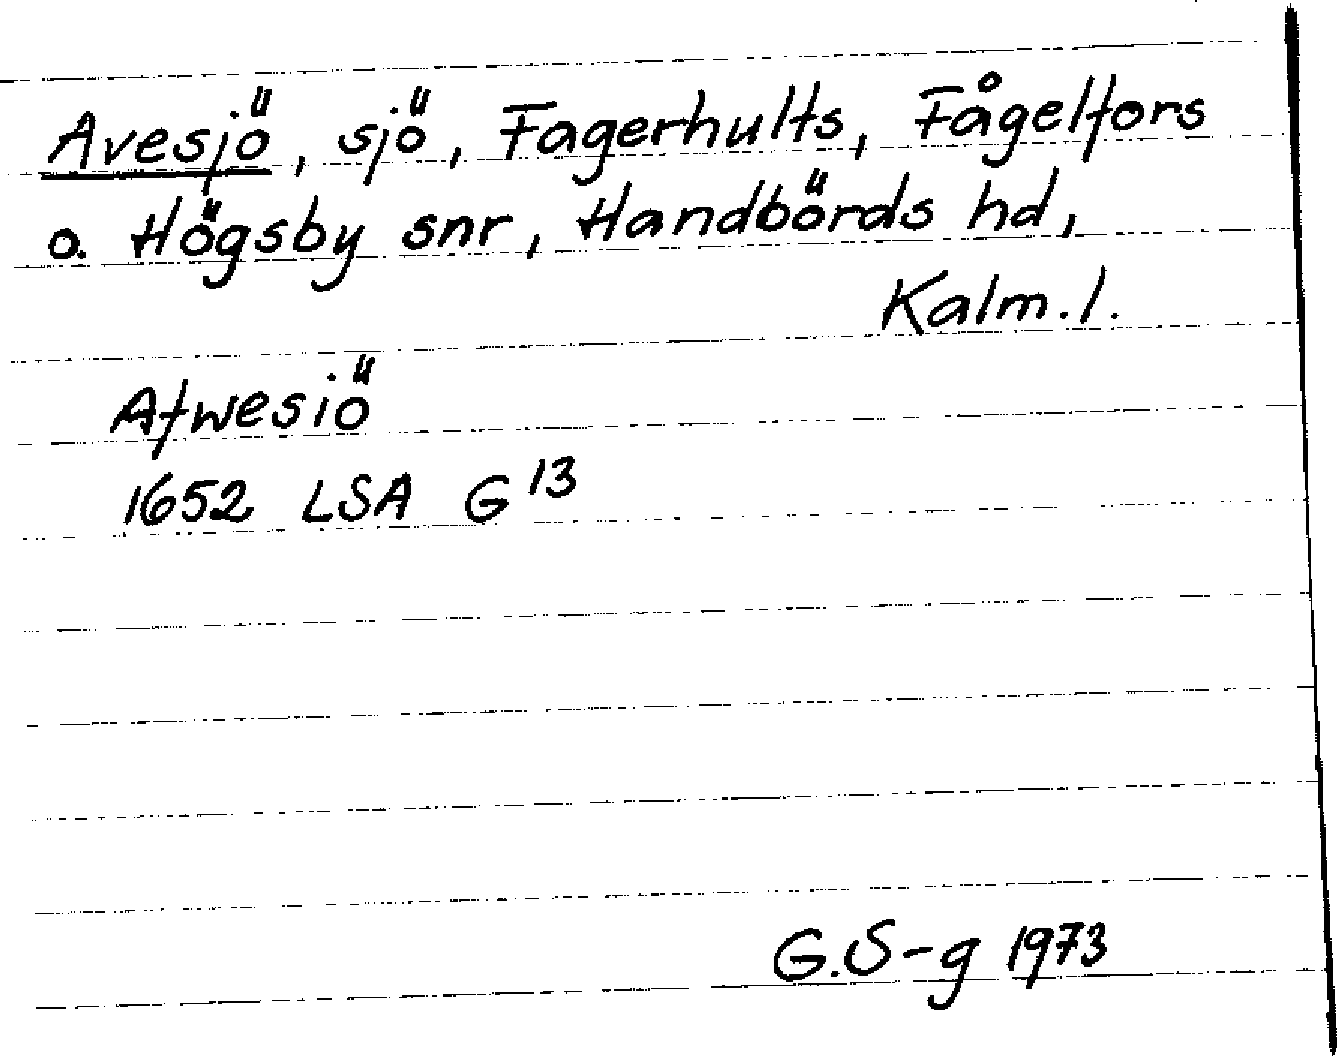 Avesjö, sjö, Fagerhults, Fågelfors
o. Högsby snr, Handbörds hd,
Kalm. l.
Afwesiö
1652 LSA G 13
G.S-g 1973